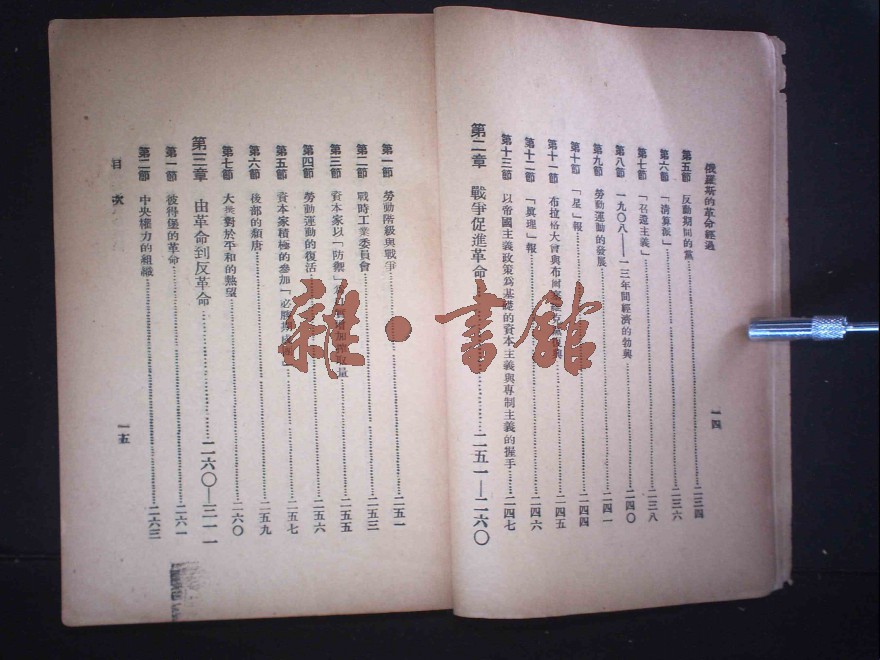 俄羅斯的革命經過
一四
第五節 反動期間的黨 二三四
第六節 「清算派」 二三六
第七節 「召還主義」 二三八
第八節 一九〇八——一三年間經濟的勃興 二四〇
第九節 勞動運動的發展 二四一
第十節 「星」報 二四四
第十一節 布拉格大會與布爾 二四五
第十二節 「眞理」報 二四六
第十三節 以帝國主義政策爲基礎的資本主義與專制主義的握手 二四七
第二章 戰爭促進革命 二五一—二六〇
第一節 勞動階級與戰爭 二五一
第二節 戰時工業委員會 二五三
第三節 資本家以「防禦」 增加 量 二五五
第四節 勞動運動的復活 二五六
第五節 資本家積極的參加「必勝 二五七
第六節 後部的頹唐 二五九
第七節 大衆對於平和的熱望 二六〇
第三章 由革命到反革命 二六〇—三一一
第一節 彼得堡的革命 二六一
第二節 中央權力的組織 二六三
目次
一五
雜·書館